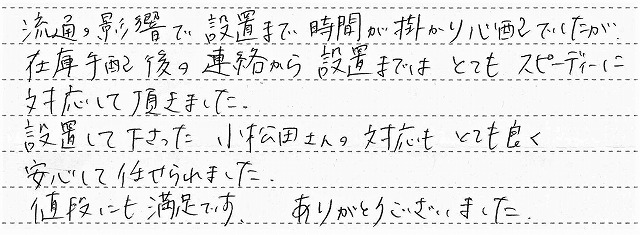 流通の影響で設置まで時間が掛かり心配でしたが、
在庫手配後の連絡から設置まではとてもスピーディーに
対応して頂きました。
設置して下さった小松田さんの対応もとても良く
安心して任せられました。
値段にも満足です。 ありがとうございました。